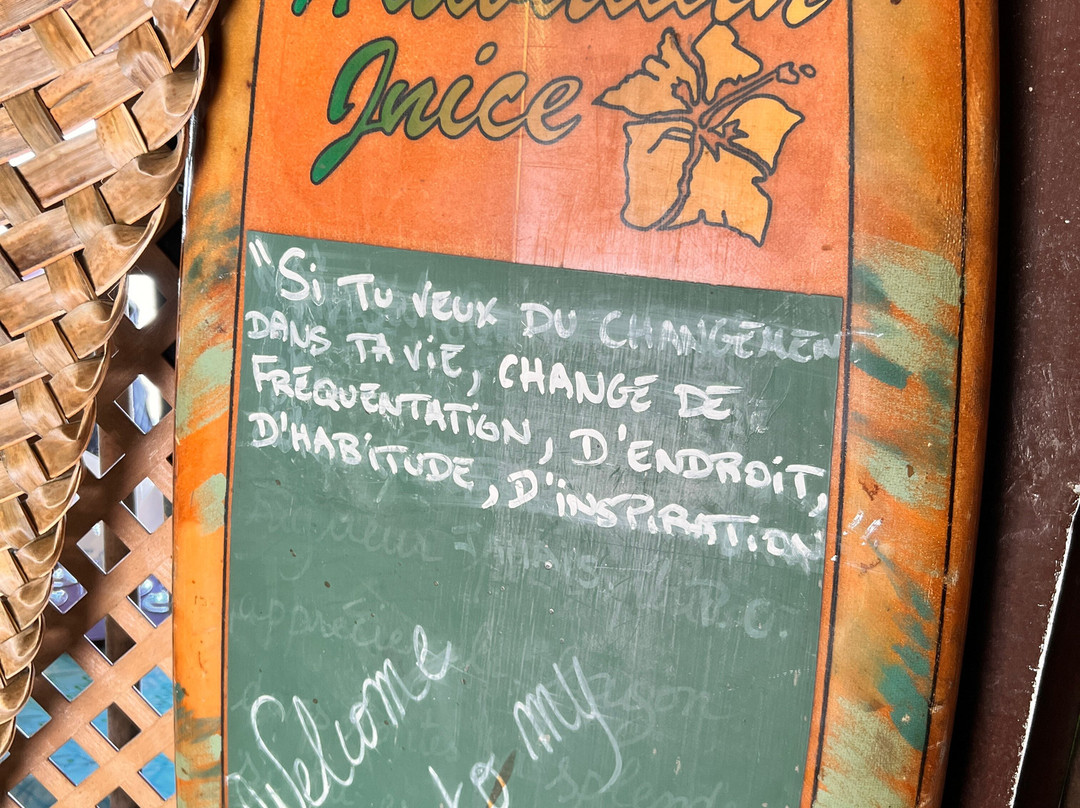 Hawaiian
Juice
"Si TU VEUX DU CHANGEMEN
DANS TA ViE, CHANGE DE
FRÉQUENTATiON, D'ENDROiT,
D'HABiTUDE, D'iNSPiRATiON"
Welcome
to my